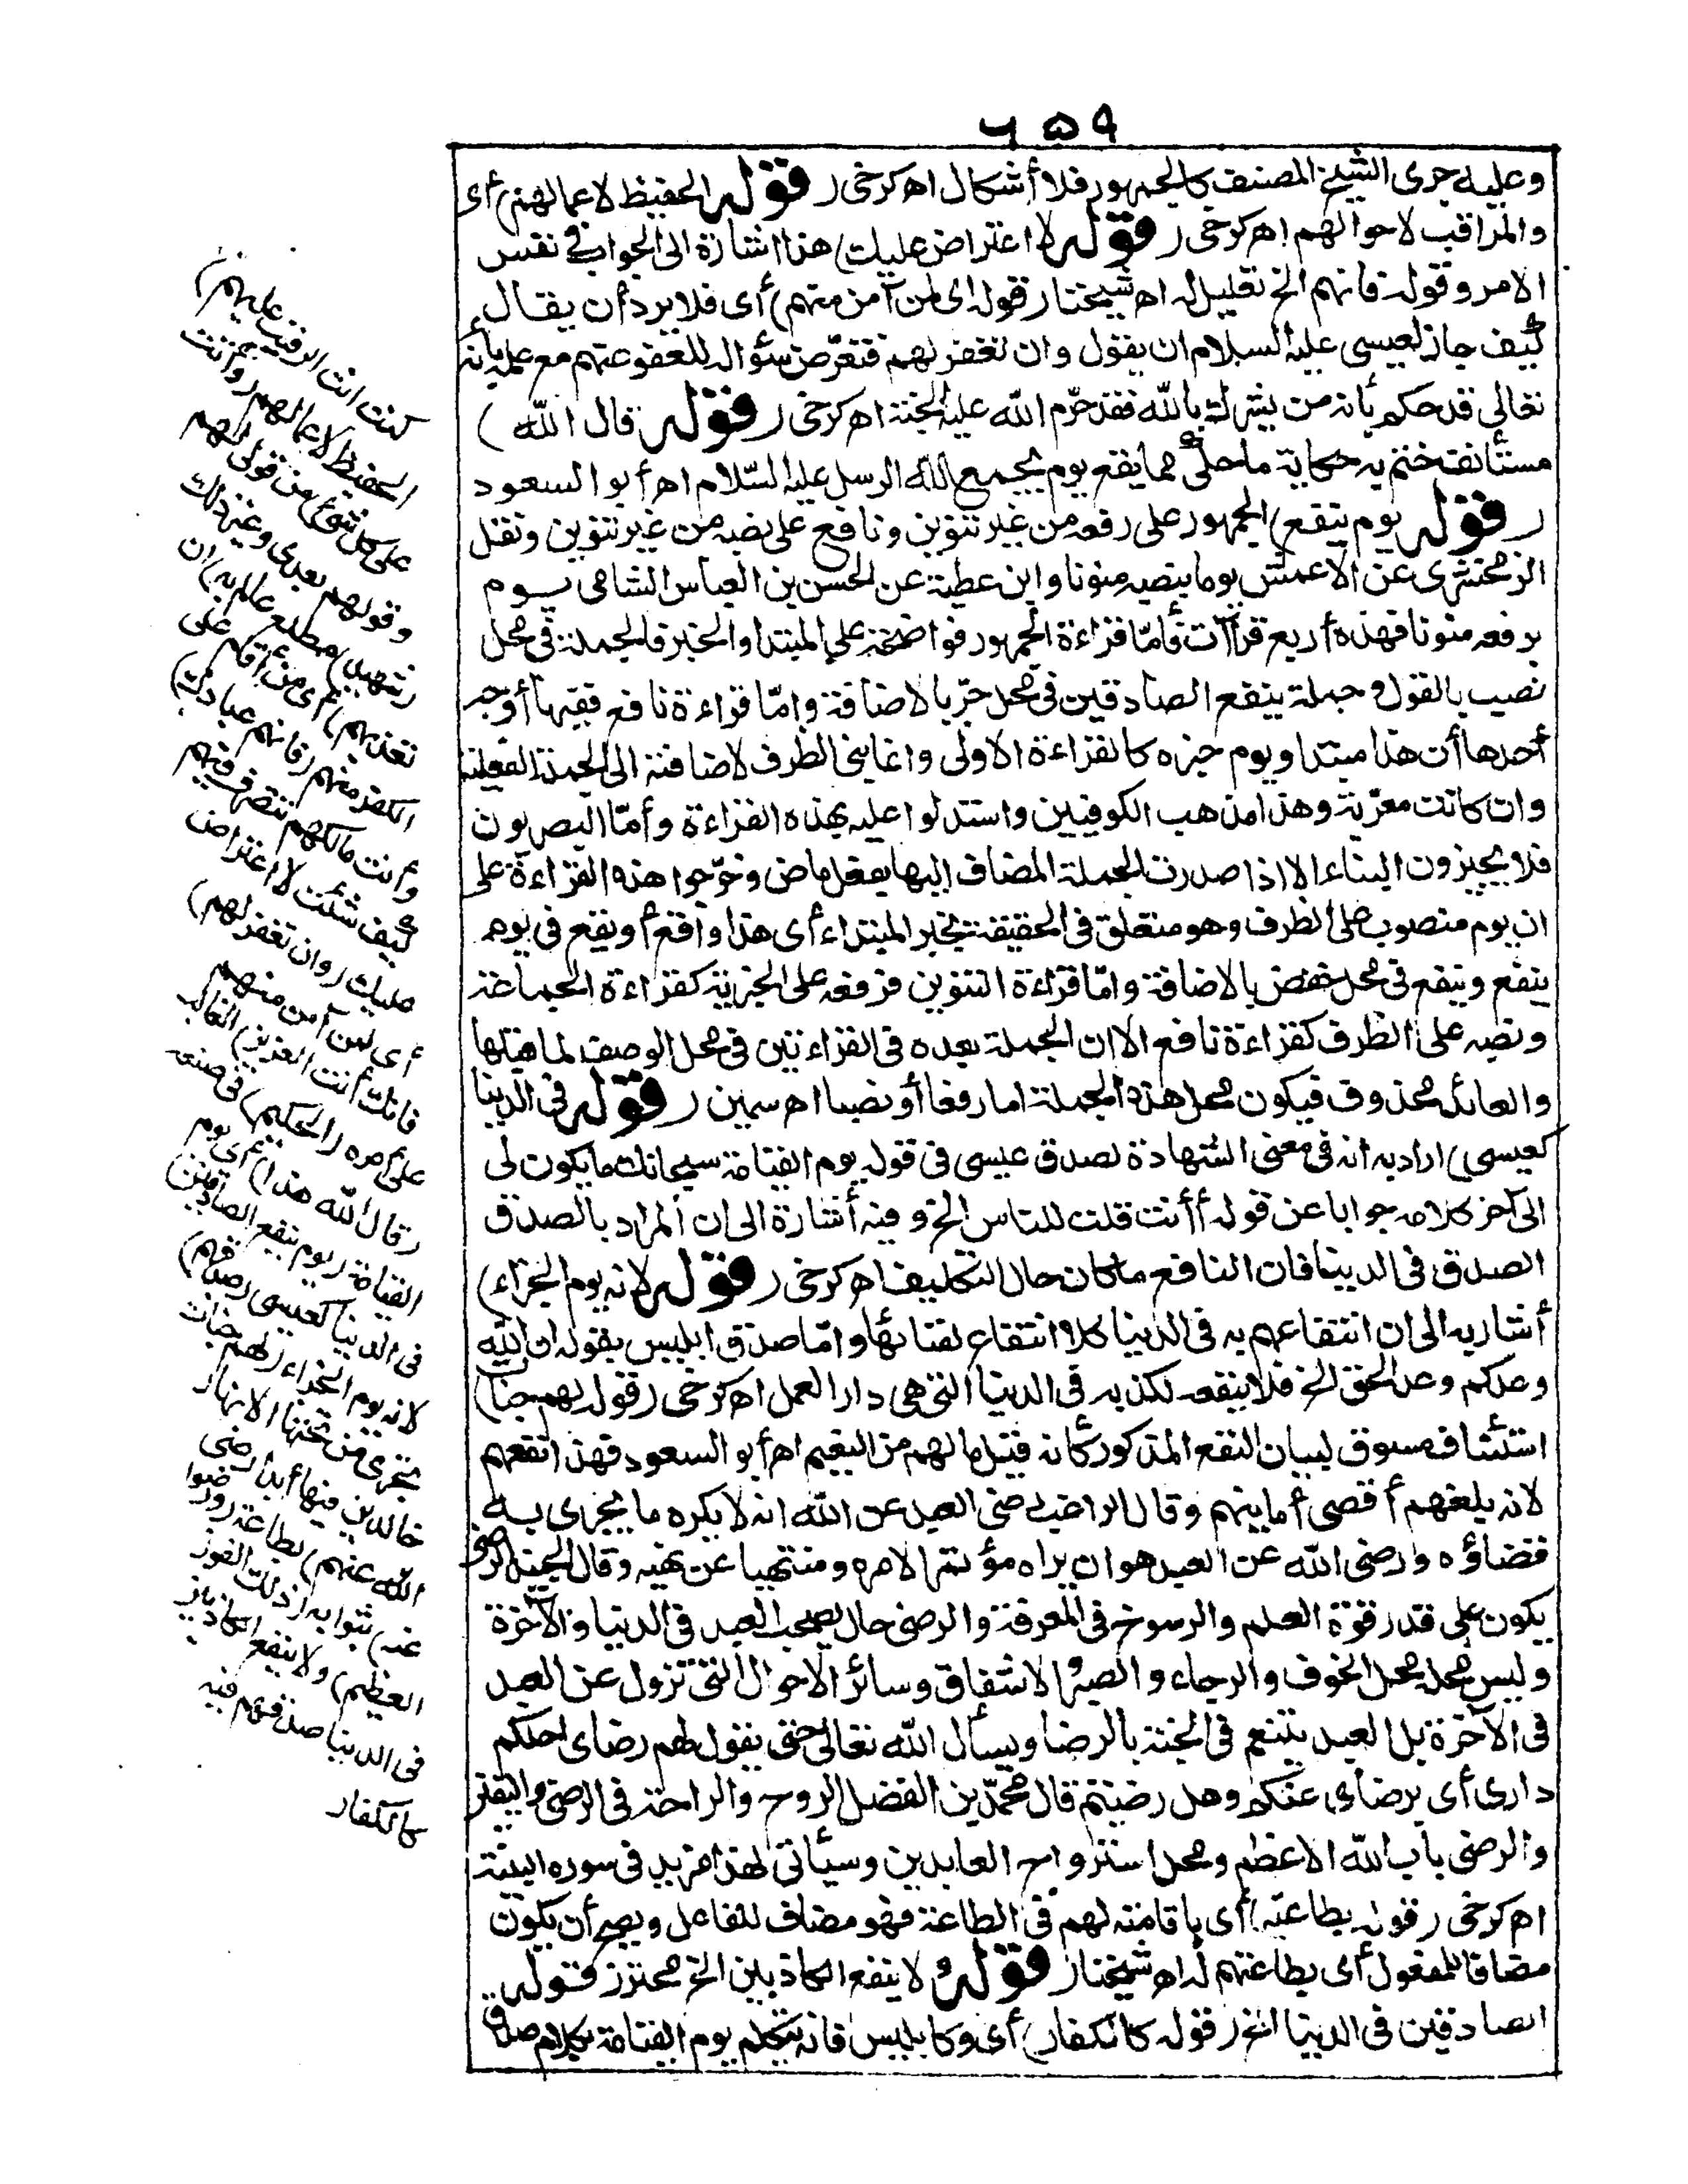 ٦٥٩
وعليه جرى الشيخ المصنف كالجمهور فلا أشكال اه كرخى ( قوله الحفيظ لاعمالهم) أى
والمراقب لاحوالهم اه كرخى ( قوله لا اعتراض عليك) هذا اشارة الى الجواب فى نفس
الامر وقوله فانهم الخ تعليل له اه شيخنا ( قوله اى لمن آمن منهم) أى فلا يرد أن يقال
كيف جاز لعيسى عليه السلام ان يقول وان تغفر لهم فتعرّض سئواله للعفو عنهم مع علمه بأنه
تعالى قد حكم بأنه من يشرك بالله فقد حرّم الله عليه الجنة اه كرخى ( قوله قال الله )
مستأنف ختم به حكاية ما حكى مما يقع يوم يجمع الله الرسل عليه السّلام اه أبو السعود
( قوله يوم ينفع) الجمهور على رفعه من غير تنوين ونافع على نصبه من غير تنوين ونقل
الزمخشرى عن الاعمش يوما بنصبه منونا وابن عطية عن الحسن بن العباس الشامى يوم
برفعه منونا فهذه أربع قرآات فأمّا قراءة الجمهور فواضحة على المبتدا والخبر فالجملة فى محل
نصب بالقول وجملة ينفع الصادقين فى محل جرّ بالاضافة وامّا قراءة نافع ففيها أوجه
أحدها أن هذا مبتدا ويوم خبره كالقراءة الاولى وانما بنى الظرف لاضافته الى الجملة الفعلية
وان كانت معرّبة وهذا مذهب الكوفيين واستدلوا عليه بهذه القراءة وأمّا البصريون
فلا يجيزون البناء الا اذا صدرت الجملة المضاف اليها بفعل ماض وخرّجوا هذه القراءة على
ان يوم منصوب على الظرف وهو متعلق فى الحقيقة بخبر المبتداء أى هذا واقع أو يقع فى يوم
ينفع وينفع فى محل خفض بالاضافة وامّا قراءة التنوين فرفعه على الخبرية كقراءة الجماعة
ونصبه على الظرف كقراءة نافع الا ان الجملة بعده فى القراءتين فى محل الوصف لما قبلها
والعائد محذوف فيكون محل هذه الجملة اما رفعا أو نصبا اه سمين ( قوله فى الدنيا
كعيسى) اراد به انه فى معنى الشهادة لصدق عيسى فى قوله يوم القيامة سبحانك ما يكون لى
الى آخر كلامه جوابا عن قوله أأنت قلت للناس الخ وفيه أشارة الى ان المراد بالصدق
الصدق فى الدينا فان النافع ما كان حال التكليف اه كرخى ( قوله لانه يوم الجزاء)
أشار به الى ان انتفاعهم به فى الدينا كلا انتفاع لفنائها وامّا صدق ابليس بقوله ان الله
وعدكم وعد الحق الخ فلا ينفعه لكذبه فى الدينا التى هى دار العمل اه كرخى ( قوله لهم جنات)
استئناف مسوق لبيان النفع المذكور كأنه قيل ما لهم من النعيم اه أبو السعود فهذا نفعهم
لانه يلغهم أقصى أمانيهم وقال الراغب رضى العبد عن الله انه لا يكره ما يجرى به
قضاؤه ورضى الله عن العبد هو ان يراه مؤتمرا لامره ومنتهيا عن نهيه وقال الجنيد الرضى
يكون على قدر قوّة العلم والرسوخ فى المعرفة والرضى حال يصحب العبد فى الدينا والآخرة
وليس محله محل الخوف والرجاء والصبر الاشفاق وسائر الاحوال التى تزول عن العبد
فى الآخرة بل العبد يتنعم فى الجنة بالرضا ويسأل الله تعالى حتى يقول لهم رضاى احلكم
دارى أى برضاى عنكم وهل رضيتم قال محمّد بن الفضل الروح والراحة فى الرضى واليقين
والرضى باب الله الاعظم ومحل استرواح العابدين وسيأتى لهذا مزيد فى سوره البينة
اه كرخى ( قوله بطاعته) أى باقامته لهم فى الطاعة فهو مضاف للفاعل ويصح أن يكون
مضافا للمفعول أى بطاعتهم له اه شيخنا ( قوله ولا ينفع الكاذبين الخ محترز قوله
الصادقين فى الدينا الخ ( قوله كالكفار) أى وكابليس فانه يتكلم يوم القيامة بكلام صدق
كنت انت الرقيب عليهم)
الحفيظ لاعمالهم (وأنت
على كل شئ) من قولى لهم
وقولهم بعدى وغير ذلك
(شهيد) مطلع عالم به (ان
تعذبهم) أى من أقام على
الكفر منهم (فانهم عبادك)
وأنت مالكهم تتصرف فيهم
كيف شئت لا اعتراض
عليك (وان تغفر لهم)
أى لمن آمن منهم
فانك أنت العزيز) الغالب
على أمره (الحكيم) فى صنعه
(قال الله هذا) أى يوم
القيامة (يوم ينفع الصادقين)
فى الدينا كعيسى (صدقهم)
لانه يوم الجزاء (لهم جنات
تجرى من تحتها الانهار
خالدين فيها أبدا رضى
الله عنهم) بطاعته (ورضوا
عنه) بثوابه (ذلك الفوز
العظيم) ولا ينفع الكاذبين
فى الدينا صدقهم فيه
كالكفار